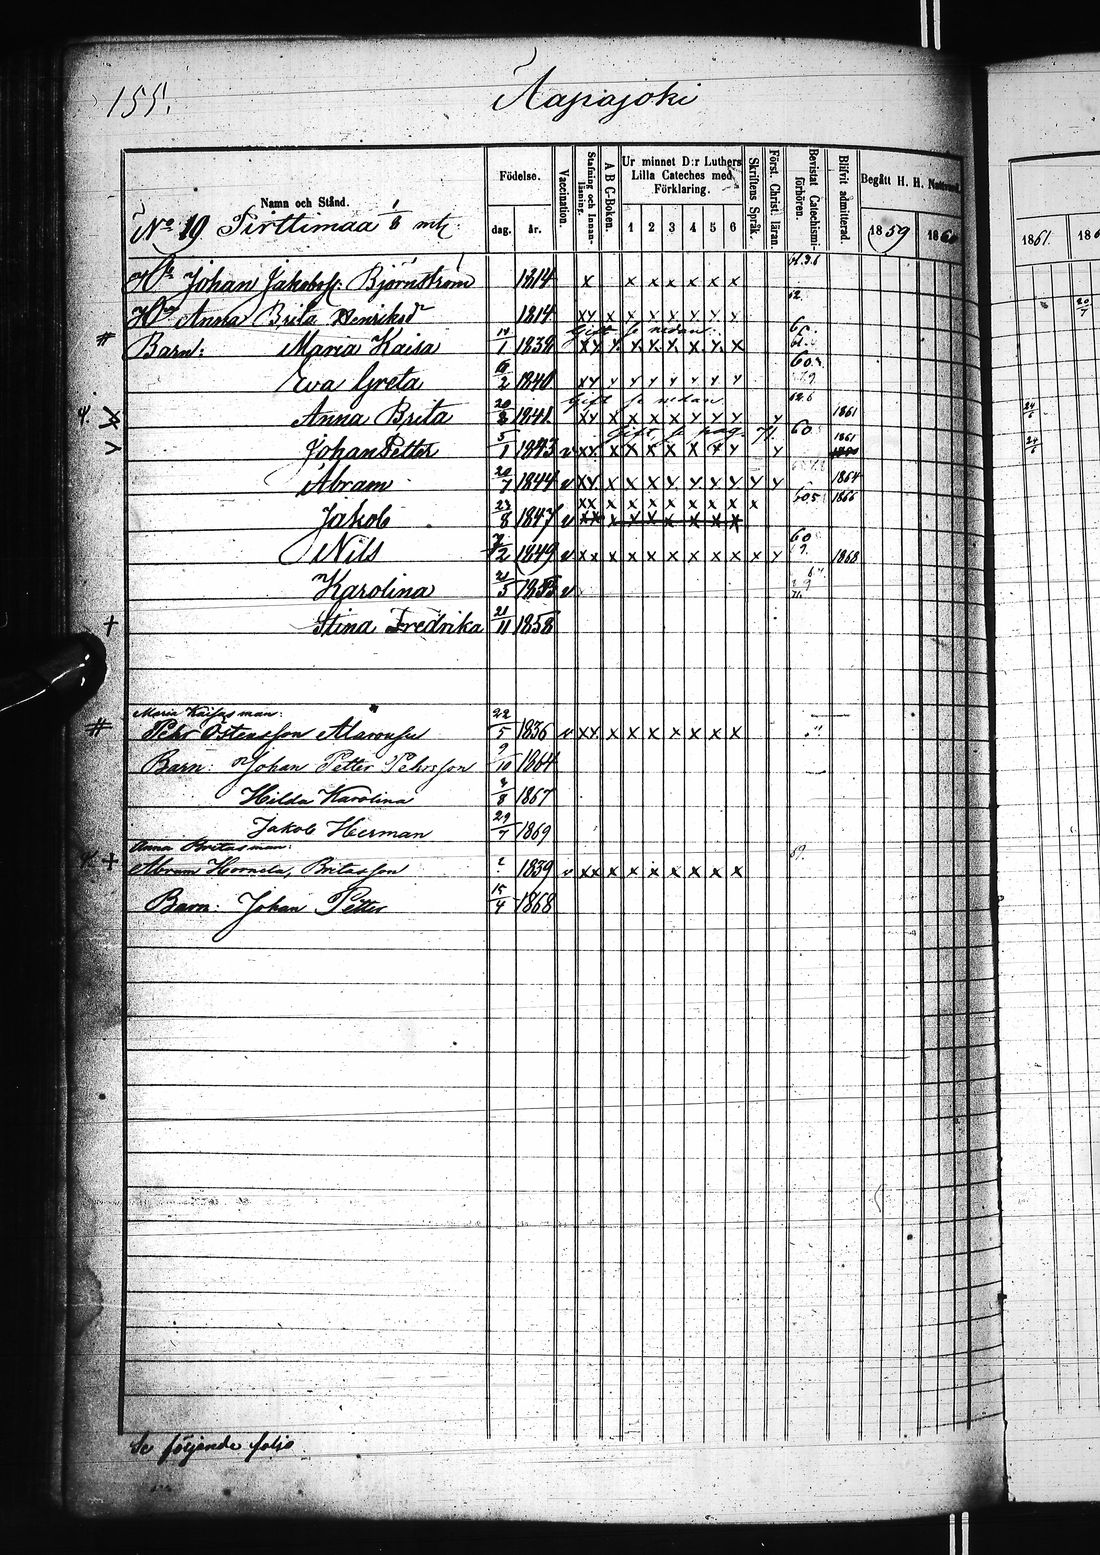 155.
Aapajoki
Namn och Stånd.
Födelse.
dag.
år.
Vaccination.
Stafning och Innanläsning.
A B C-Boken.
Ur minnet D:r Luthers Lilla Cateches med Förklaring.
1 2 3 4 5 6
Skriftens Språk.
Först. Christ. läran.
Bevistat Catechismi-förhören.
Blifvit admitterad.
Begått H. H. Nattvard.
1859 1860
1861.
No 19 Pirttimaa 1/8 mtl.
Johan Jakobsf. Björnström 1814 x x x x x x x
Hu Anna Brita Henriksdr 1814 xy x x x x y y y
Gift se nedan.
# Barn: Maria Kaisa 1/1 1838
Eva Greta /2 1840
Gift se nedan
Anna Brita 20/2 1841 1861 24/6
Gift, se pag. 71.
Johan Petter 5/1 1843 v 60 1861 24/6
Abram 20/7 1844 v 1864
Jakob 23/8 1847 v 1866
Nils /2 1849 v xx x x x x x x x x y 60 1868
Karolina 21/5 1855 v
+ Stina Fredrika 21/11 1858
Maria Kaisas man:
# Pehr Ostensson Alarousu 22/5 1836 v xy x x x x x x x
Barn: Johan Petter Pehrsson 9/10 1864
Hilda Karolina /8 1867
Jakob Herman 29/7 1869
Anna Britas man:
+ Abram Hornela, Britasson 1839 v xx x x x x x x x 69.
Barn: Johan Petter 15/4 1868
Se följande folio